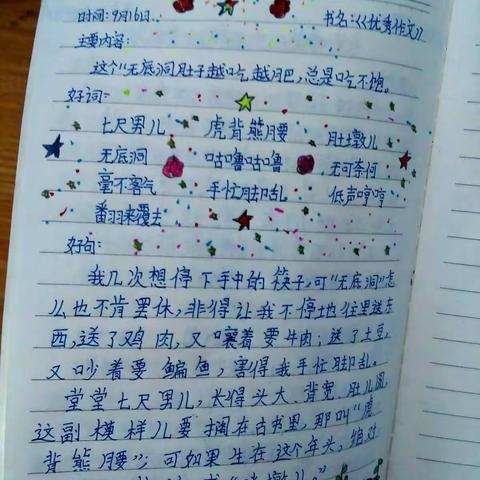 时间:9月16日. 书名:《优秀作文》
主要内容:
这个"无底洞"肚子越吃越肥,总是吃不饱。
好词:
七尺男儿 虎背熊腰 肚墩儿
无底洞 咕噜咕噜 无可奈何
毫不客气 手忙脚乱 低声哼哼
翻来覆去
好句:
我几次想停下手中的筷子,可"无底洞"怎
么也不肯罢休,非得让我不停地往里送东
西,送了鸡肉,又嚷着要牛肉;送了土豆,
又吵着要鳊鱼,害得我手忙脚乱。
堂堂七尺男儿,长得头大、背宽、肚儿圆,
这副模样儿要搁在古书里,那叫"虎
背熊腰";可如果生在这个年头,绝对
墩儿"